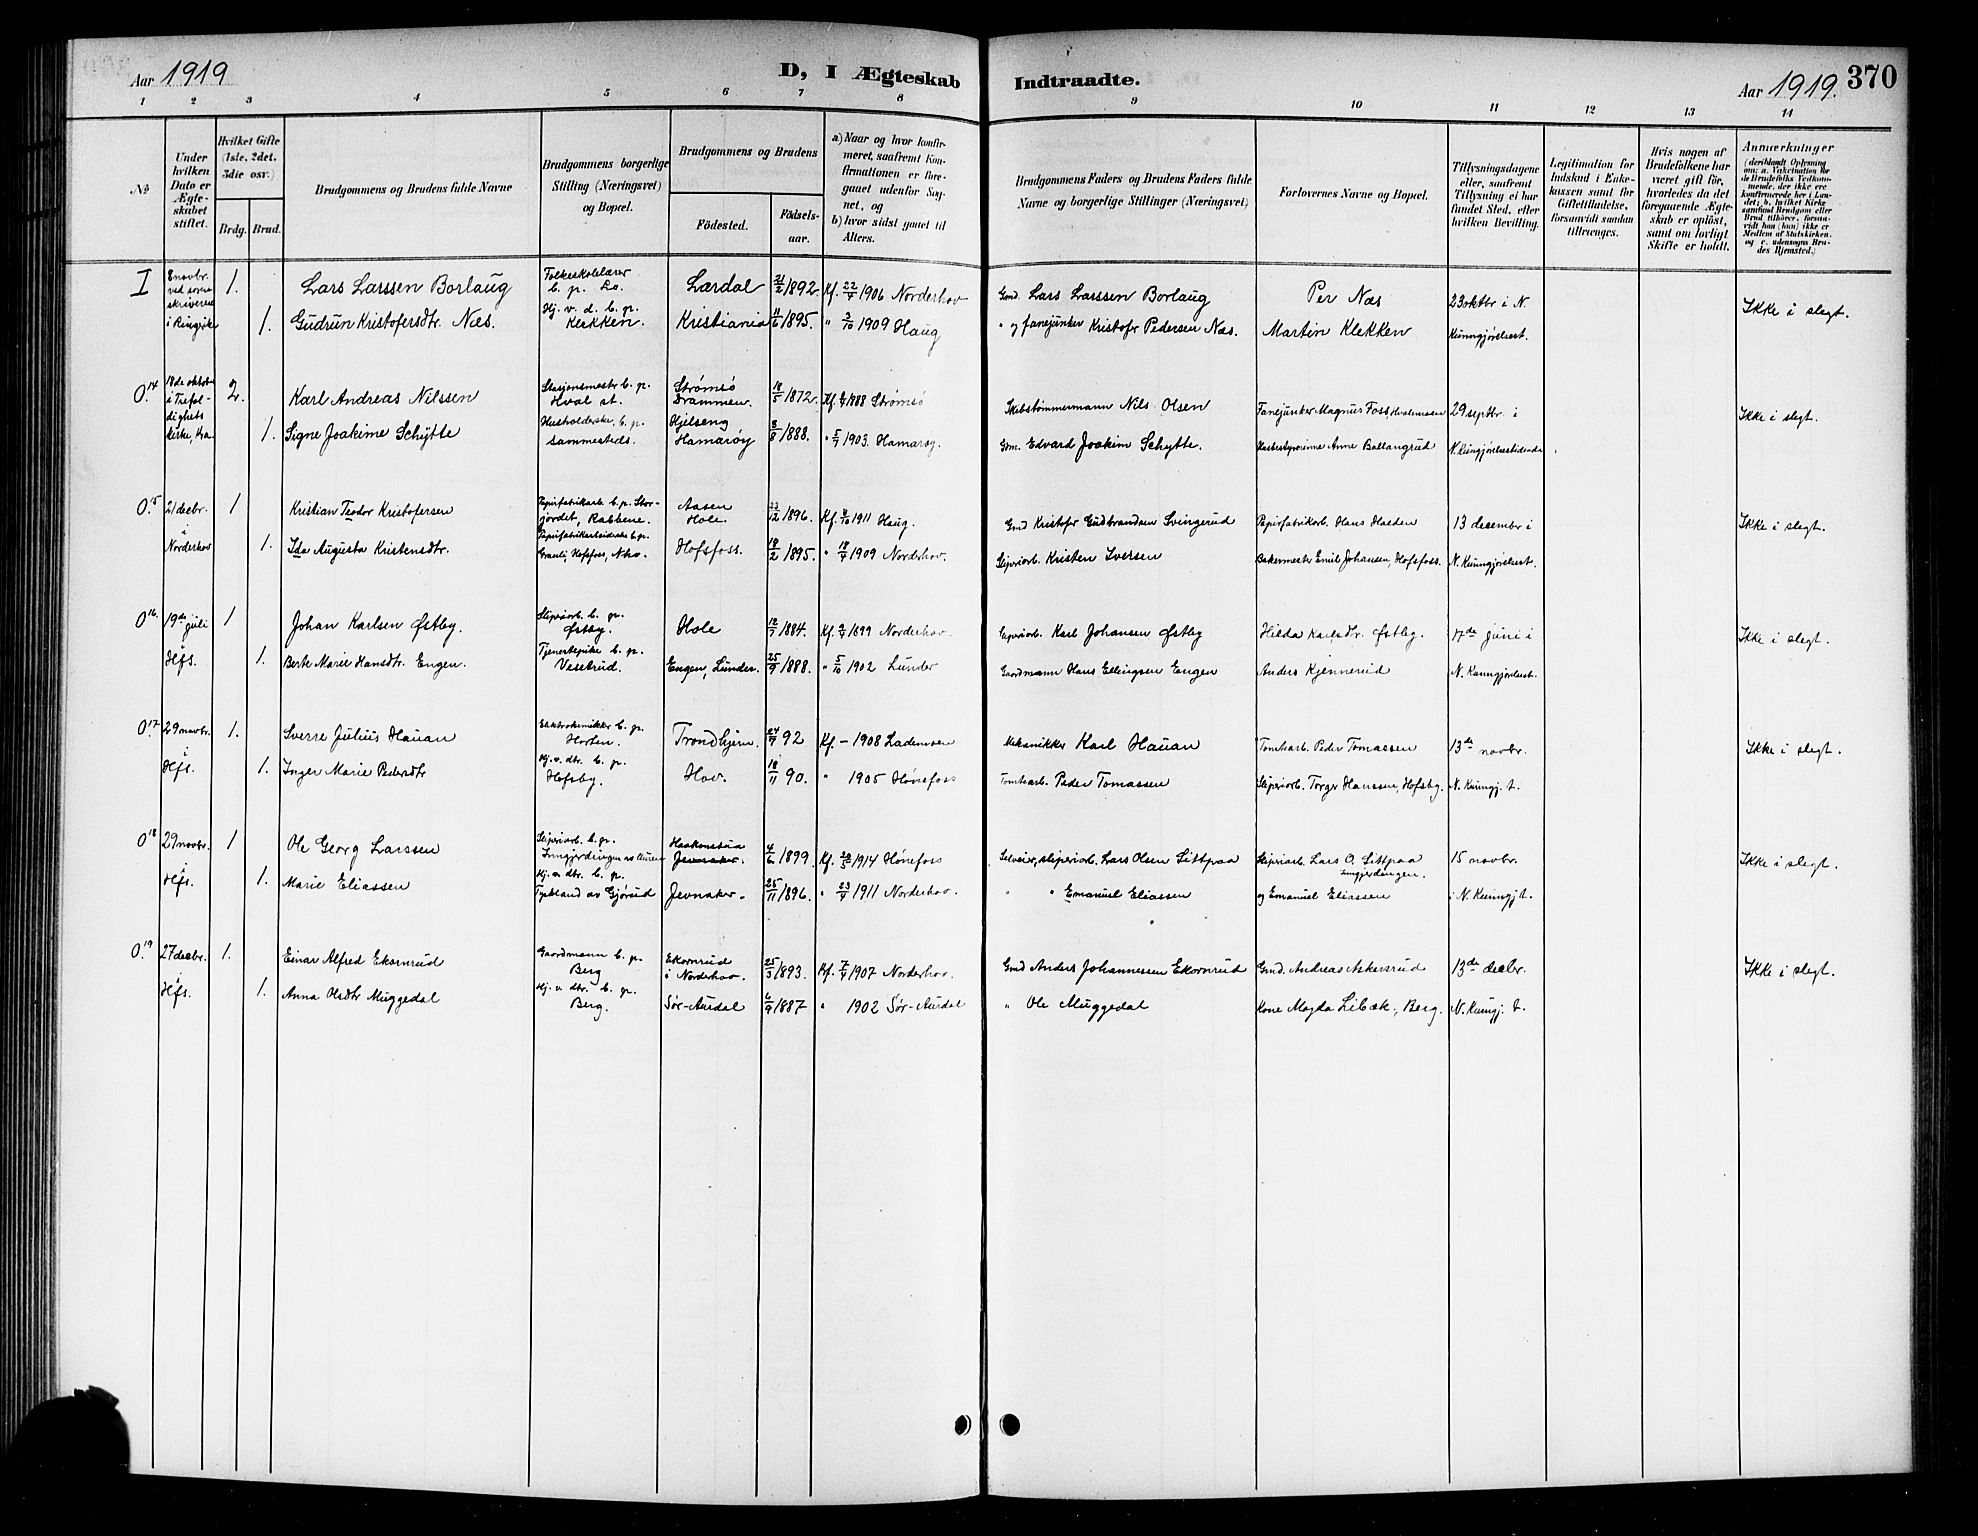 Aar 1919
D, I Ægteskab
Indtraadte.
Aar 1919.
370
1 2 3 4 5 6 7 8 9 10 11 12 13 14
№
Under hvilken Dato er Ægteskabet stiftet.
Hvilket Gifte (1ste, 2det, 3die osv.)
Brdg. Brud.
Brudgommens og Brudens fulde Navne
Brudgommens borgerlige Stilling (Næringsvei) og Bopæl.
Brudgommens og Brudens
Födested.
Födsels-aar.
a) Naar og hvor konfirmeret, saafremt Konfirmationen er foregaaet udenfor Sognet, og
b) hvor sidst gaaet til Alters.
Brudgommens Faders og Brudens Faders fulde Navne og borgerlige Stillinger (Næringsvei)
Forlovernes Navne og Bopæl.
Tillysningsdagene eller, saafremt Tillysning ei har fundet Sted, efter hvilken Bevilling.
Legitimation for Indskud i Enkekassen samt for Giftetilladelse, forsaavidt saadan tiltrænges.
Hvis nogen af Brudefolkene har været gift før, hvorledes da det foregaaende Ægteskab er opløst, samt om lovligt Skifte er holdt.
Anmærkninger
(deriblandt Oplysning om: a. Vaccination for de Brudefolks Vedkommende, der ikke ere konfirmerede her i Landet; b. hvilket Kirkesamfund Brudgom eller Brud tilhører, forsaavidt han (hun) ikke er Medlem af Statskirken, og c. udensogns Brudes Hjemsted.)
I 8 novbr. ved sorenskriveren i Ringrike 1. Lars Larssen Borlaug Folkeskolelærer b. p. Lo. Lærdal 21/2 1892. Kf. 22/4 1906 Norderhov Gmd. Lars Larssen Borlaug Per Næs 23 oktbr i N. Ikke i slegt.
1. Gudrun Kristofersdtr. Næs. Hj. v. d. b. p. Klekken. Kristiania 11/6 1895. " 3/10 1909 Haug " og fanejunker Kristofr Pedersen Næs. Martin Klekken Kunngjørelsest.
O. 14 18de oktob. i Trefoldighets kirke, Kra. 2. Karl Andreas Nilssen Stasjonsmestr b. p. Hval st. Strømsø Drammen. 18/5 1872. Kf. 1888 Strømsø Skibstømmermann Nils Olsen Fanejunker Magnus Foss 29 septbr. i Ikke i slegt.
1. Signe Joakime Schytte Husholderske, b. p. sammesteds. Hjelseng Hamarøy 8/8 1888. " 5/7 1903. Hamarøy. Gm. Edvard Joakim Schytte. Anne Ballangrud N. Kungjørelsestidende
O. 15 21 decbr. i Norderhov 1 Kristian Teodor Kristofersen Papirfabrikarb. b. p. Storjordet, Rabbene. Aasen Hole. 22/12 1896. Kf. 8/10 1911 Haug. Gmd Kristofr Gudbrandsen Svingerud Papirfabrikarb. Hans Hæden 13 desember i Ikke i slegt.
1. Ida Augusta Kristensdtr. Papirfabrikarbeiderske b. p. Granli, Hofsfoss, Aho. Hofsfoss. 18/2 1895. " 18/4 1909 Norderhov. Sliperiarb. Kristen Iversen Bakermester Emil Johansen, Hofsfoss. N. Kunngjørelsest.
O. 16. 19de juli i Hfs. 1 Johan Karlsen Østby. Sliperiarb. b. p. Østby. Hole 12/7 1884. Kf. 1899 Norderhov. Sliperiarb. Karl Johansen Østby Hilda Karlsdtr. Østby. 17de juni i Ikke i slegt.
1. Berte Marie Hansdtr. Engen. Tjenestepike b. p. Vesetrud. Engen, Lunder. 25/9 1888. " 5/10 1902 Lunder Gaardmann Hans Ellingsen Engen Anders Kjennerud N. Kunngjørelsest.
O. 17. 29 novbr. i Hfs. 1. Sverre Julius Hauan Elektrokemikker b. p. Horten. Trondhjem. 24/9 92 Kf. – 1908 Lademoen Mekanikker Karl Hauan Tomtearb. Peder Tomassen 13de novbr. Ikke i slegt.
1. Inger Marie Pedersdtr Hj. v. dtr. b. p. Hofsby. Hov. 18/11 90. " 1905 Hønefoss Tomtearb. Peder Tomassen Sliperiarb. Torger Hanssen, Hofsby. N. Kunngj. t.
O. 18 29 novbr. i Hfs. 1 Ole Georg Larssen Sliperiarb. b. p. Inngjerdingen Haakenstua Jevnaker. 4/6 1899. Kf. 1914 Hønefoss Selveier, sliperiarb. Lars Olsen Littpaa Sliperiarb. Lars O. Littpaa Inngjerdingen. 15 novbr. Ikke i slegt.
1. Marie Eliassen Hj. v. dtr. b. p. Tyskland av Gjørud Jevnaker. 25/11 1896. " 23/4 1911 Norderhov. " " Emanuel Eliassen og Emanuel Eliassen i N. Kunngj t.
O. 19 27 decbr. i Hfs. 1. Einar Alfred Ekornrud Gaardmann b. p. Berg Ekornrud i Norderhov. 25/3 1893. Kf. 7/4 1907 Norderhov. Gmd Anders Johannessen Ekornrud Gmd. Andreas Askersrud 13de decbr. Ikke i slegt.
1. Anna Olsdtr Muggedal Hj. v. dtr. b. p. Berg. Sør-Aurdal 6/9 1887 " 1902 Sør-Aurdal " Ole Muggedal Kone Magda Libæk, Berg. N. Kunngj. t.